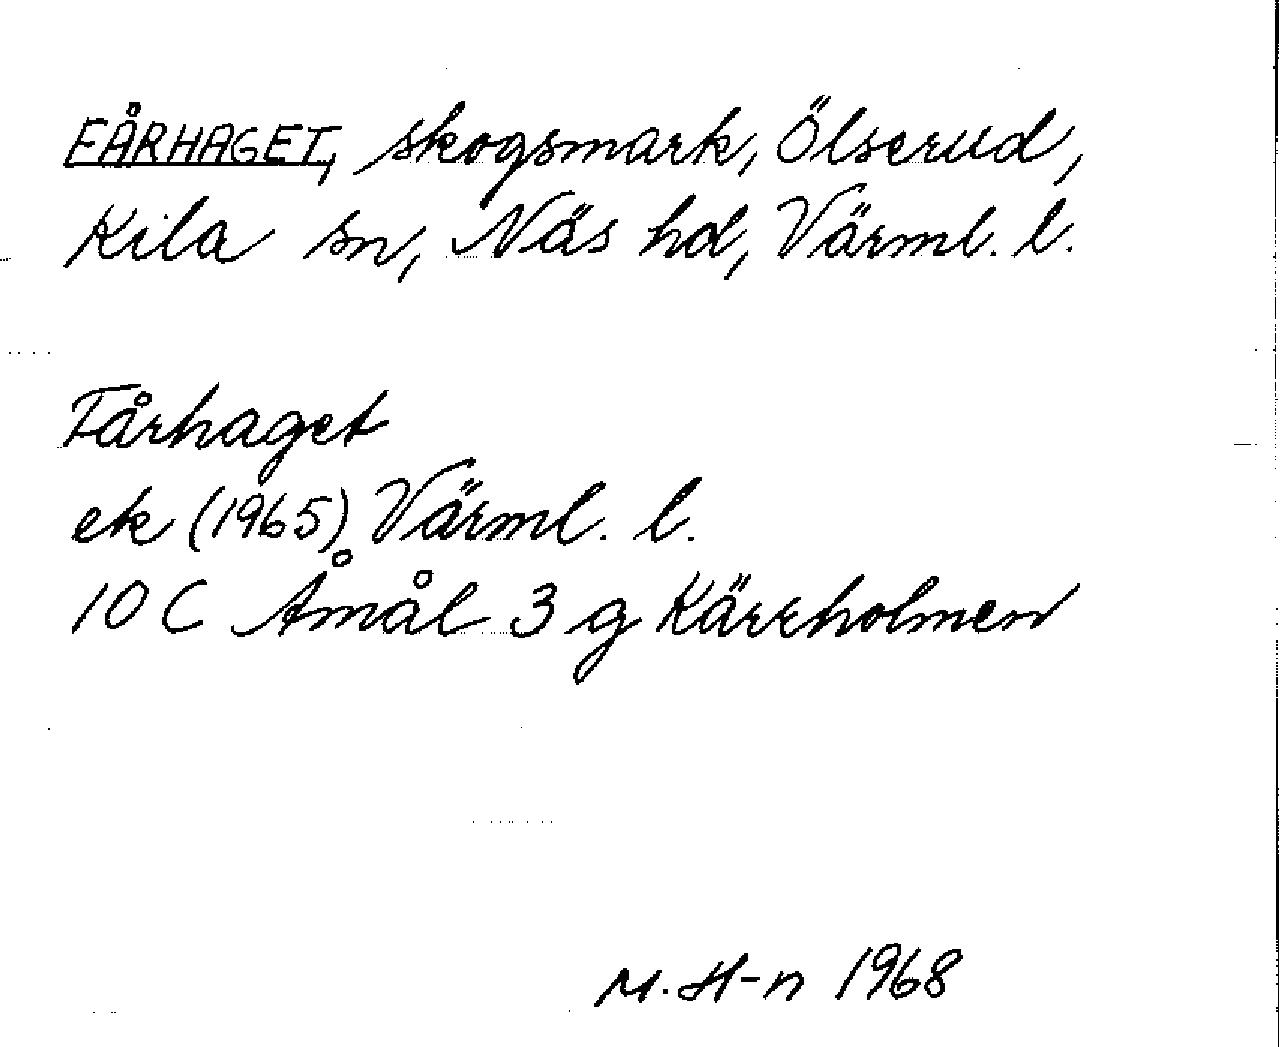 FÅRHAGET, skogsmark, Ölserud,
Kila sn, Näs hd, Värml. l.
Fårhaget
ek (1965) Värml. l.
10 C Åmål 3 g Kärrholmen
M. H-n 1968